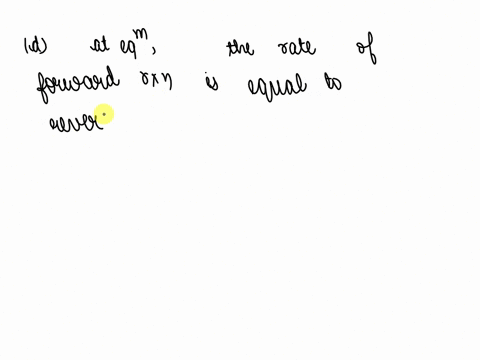 (d) at eqᵐ, the rate of
forward rxn is equal to
rever